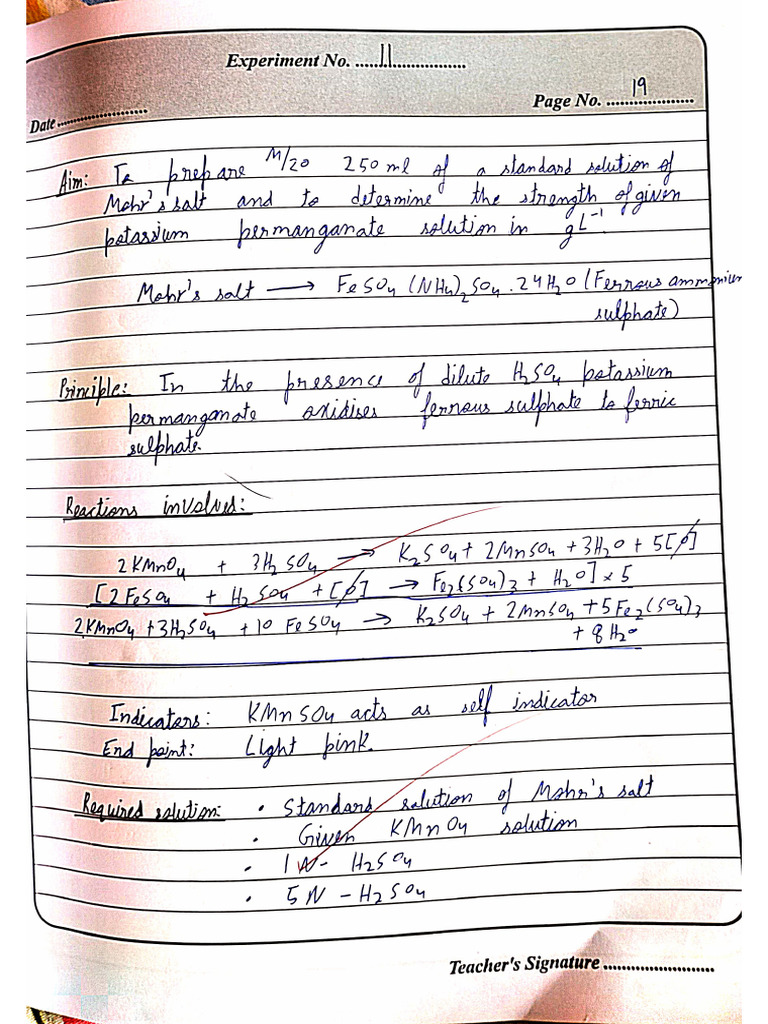 Experiment No. ......11..................
Page No. ......19...............
Date ........................
Aim: To prepare M/20 250 ml of a standard solution of
Mohr's salt and to determine the strength of given
potassium permanganate solution in gL⁻¹.
Mohr's salt → FeSO4 (NH4)2SO4 . 24H2O (Ferrous ammonium
sulphate)
Principle: In the presence of dilute H2SO4 potassium
permanganate oxidises ferrous sulphate to ferric
sulphate.
Reactions involved:
2KMnO4 + 3H2SO4 → K2SO4 + 2MnSO4 + 3H2O + 5[O]
[2FeSO4 + H2SO4 + [O] → Fe2(SO4)3 + H2O] × 5
2KMnO4 + 3H2SO4 + 10 FeSO4 → K2SO4 + 2MnSO4 + 5Fe2(SO4)3
+ 8H2O
Indicators: KMnSO4 acts as self indicator
End point: Light pink.
Required solution: • Standard solution of Mohr's salt
• Given KMnO4 solution
• 1N - H2SO4
• 5N - H2SO4
Teacher's Signature ........................